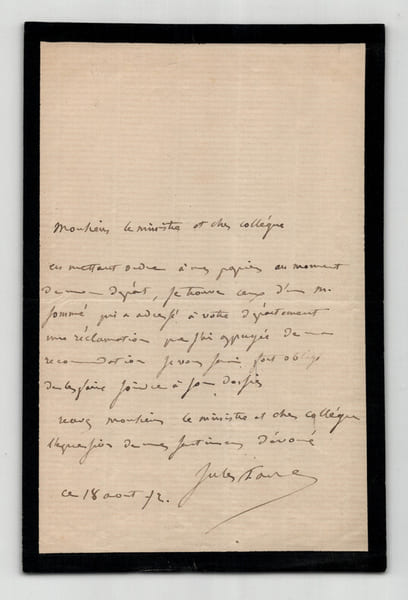 Monsieur le ministre et cher collègue
en mettant ordre à mes papiers au moment
de mon départ, je trouve ceux d'un M.
Sommé qui a adressé à votre département
une réclamation que j'ai appuyée de ma
recommandation je vous serai fort obligé
de les faire joindre à son dossier
recevez monsieur le ministre et cher collègue
l'expression de mes sentiments dévoués
Jules Favre
ce 18 aout 72.